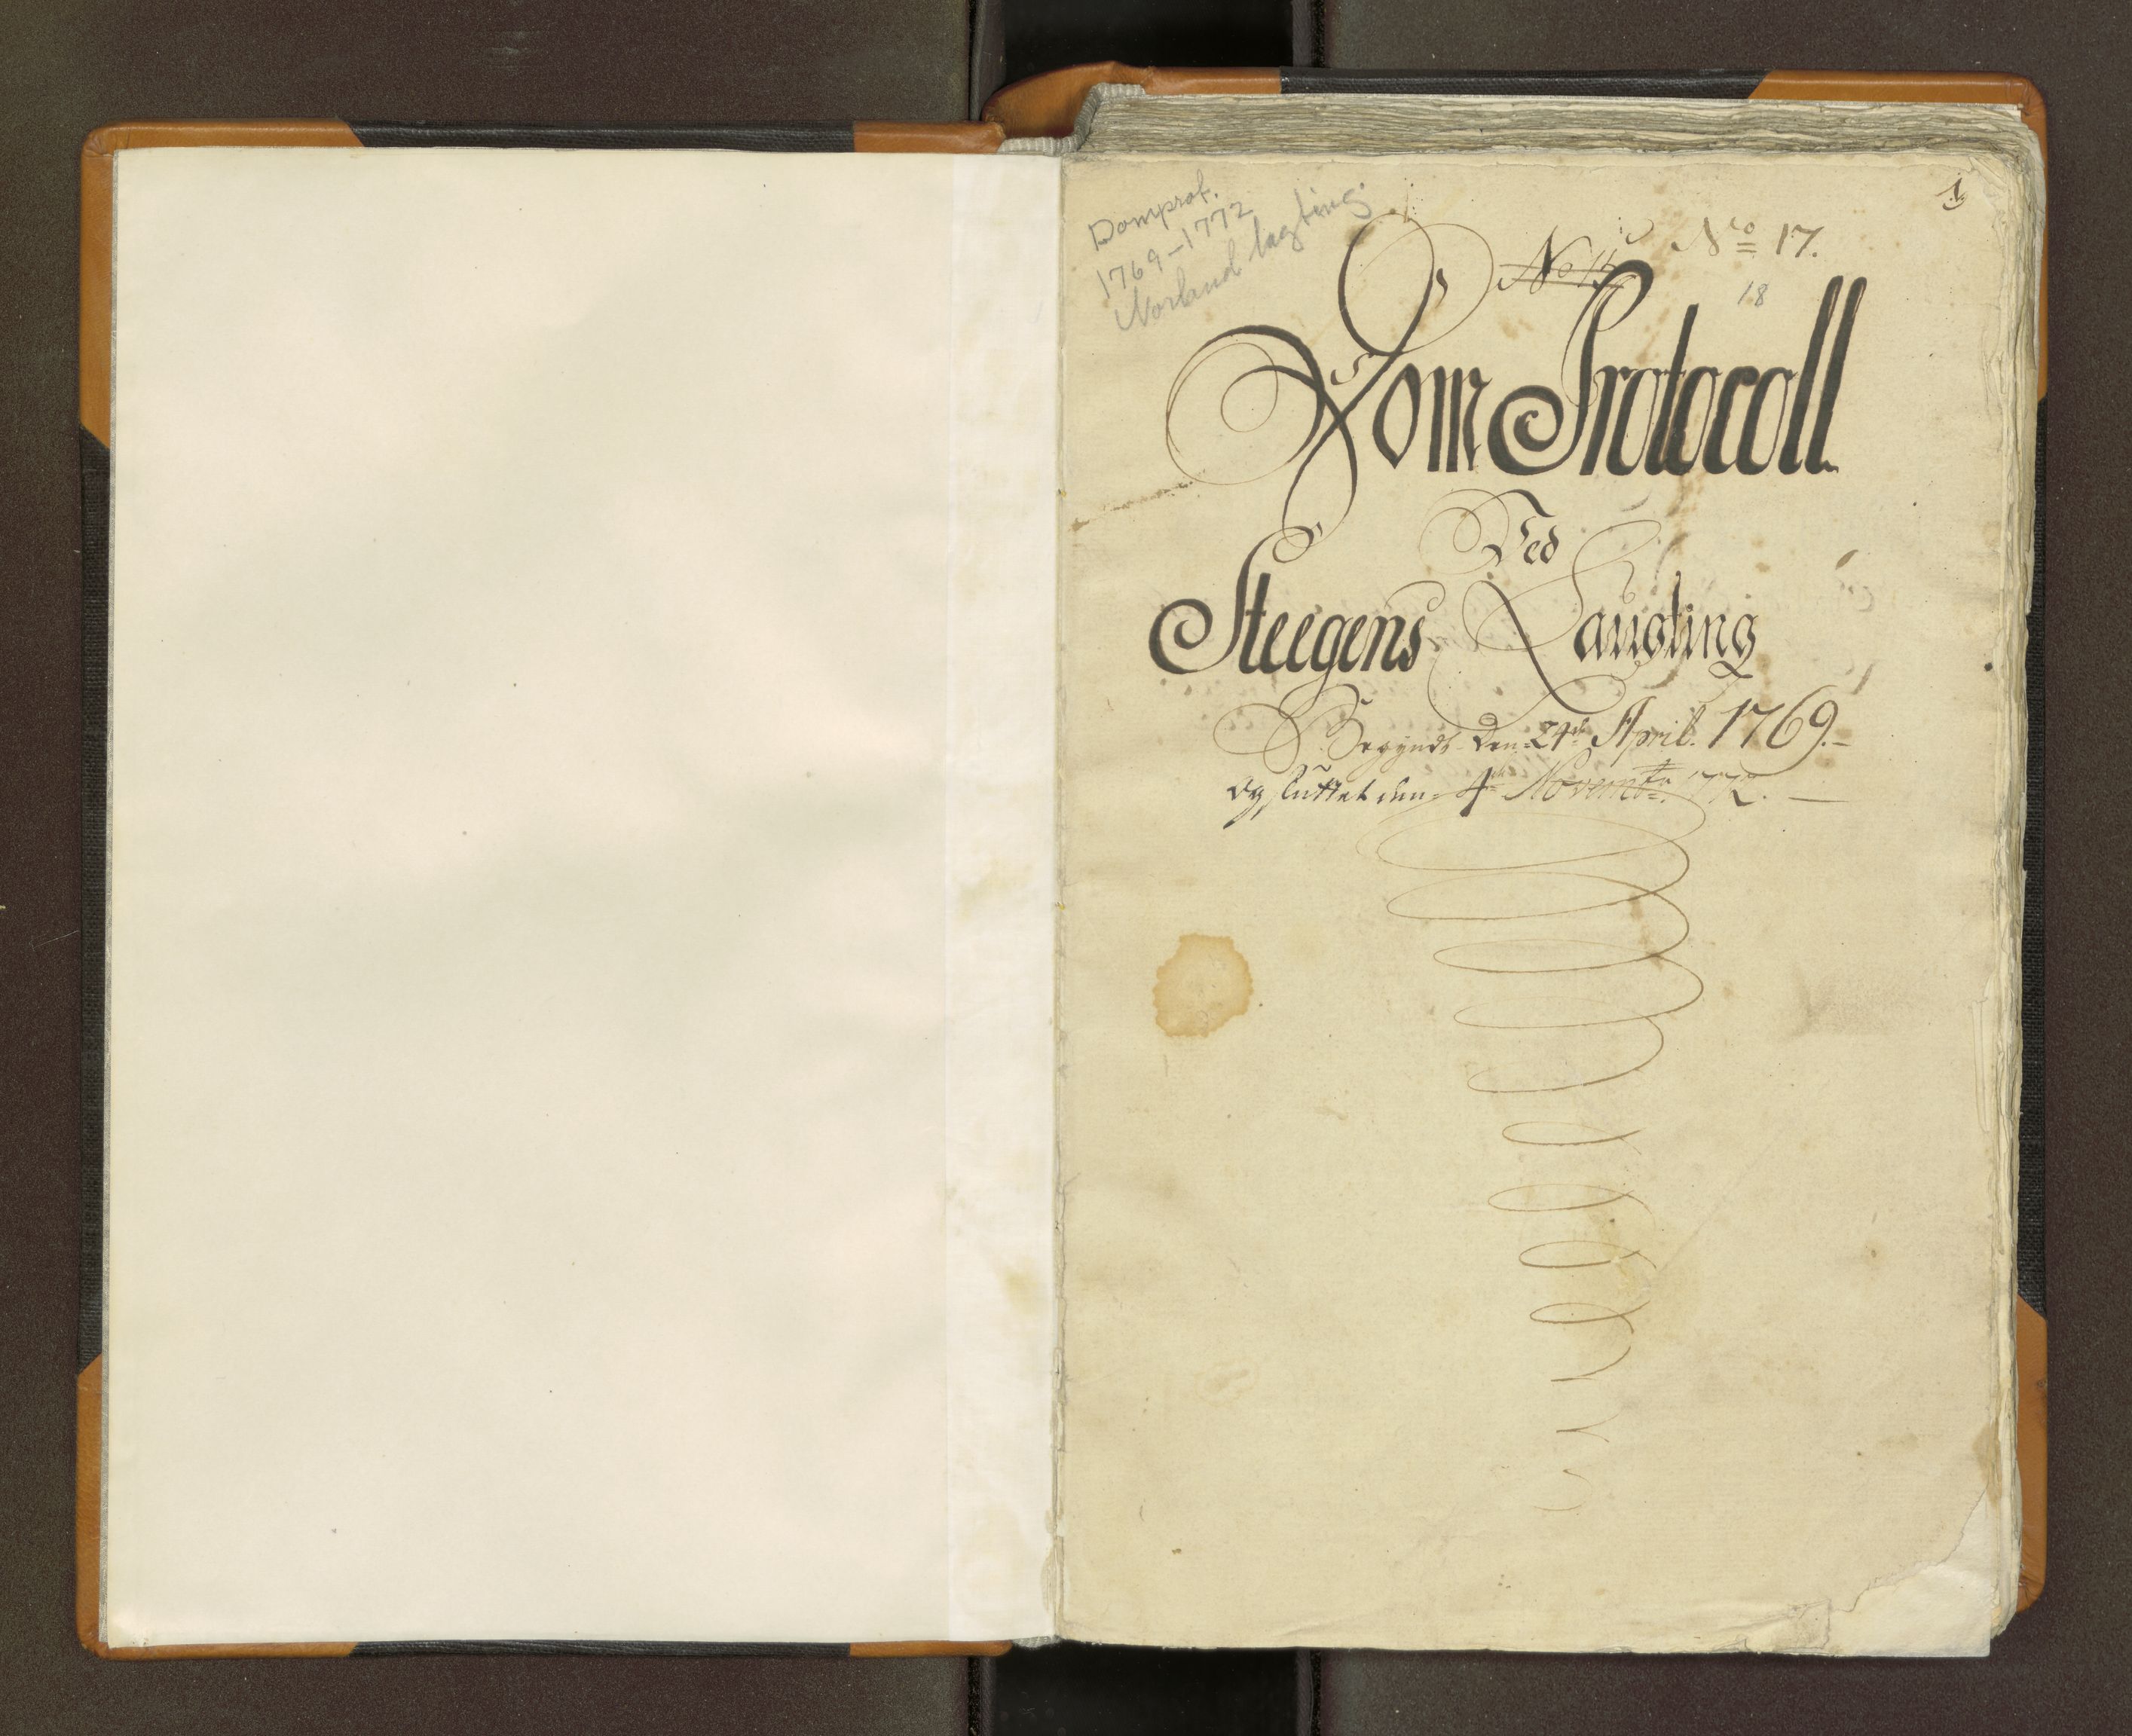 1
Domprot.
1769-1772
Norland lagting
No 17.
18
Dom Protocoll
Ved
Steegens Laugting
Begyndt den 24de April. 1769.-
og sluttet den 4de Novembr. 1772. -